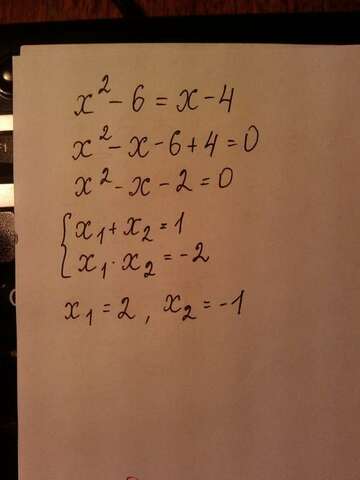 x² - 6 = x - 4
x² - x - 6 + 4 = 0
x² - x - 2 = 0
{ x₁ + x₂ = 1
x₁ · x₂ = -2
x₁ = 2, x₂ = -1